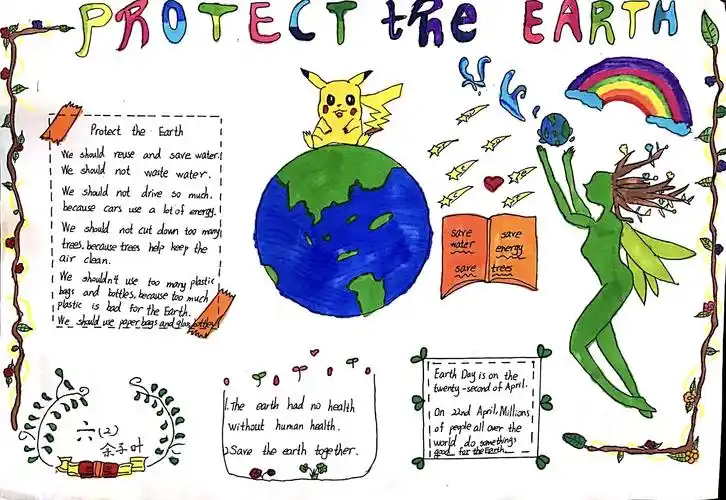 PROTECT the EARTH
Protect the Earth
We should reuse and save water.
We should not waste water.
We should not drive so much,
because cars use a lot of energy.
We should not cut down too many
trees, because trees help keep the
air clean.
We shouldn't use too many plastic
bags and bottles, because too much
plastic is bad for the Earth.
We should use paper bags and glass bottles.
save
water
save
energy
save trees
六(2)
余子叶
1.The earth had no health
without human health.
2.Save the earth together.
Earth Day is on the
twenty-second of April.
On 22nd April, Millions
of people all over the
world do somethings
good for the Earth.